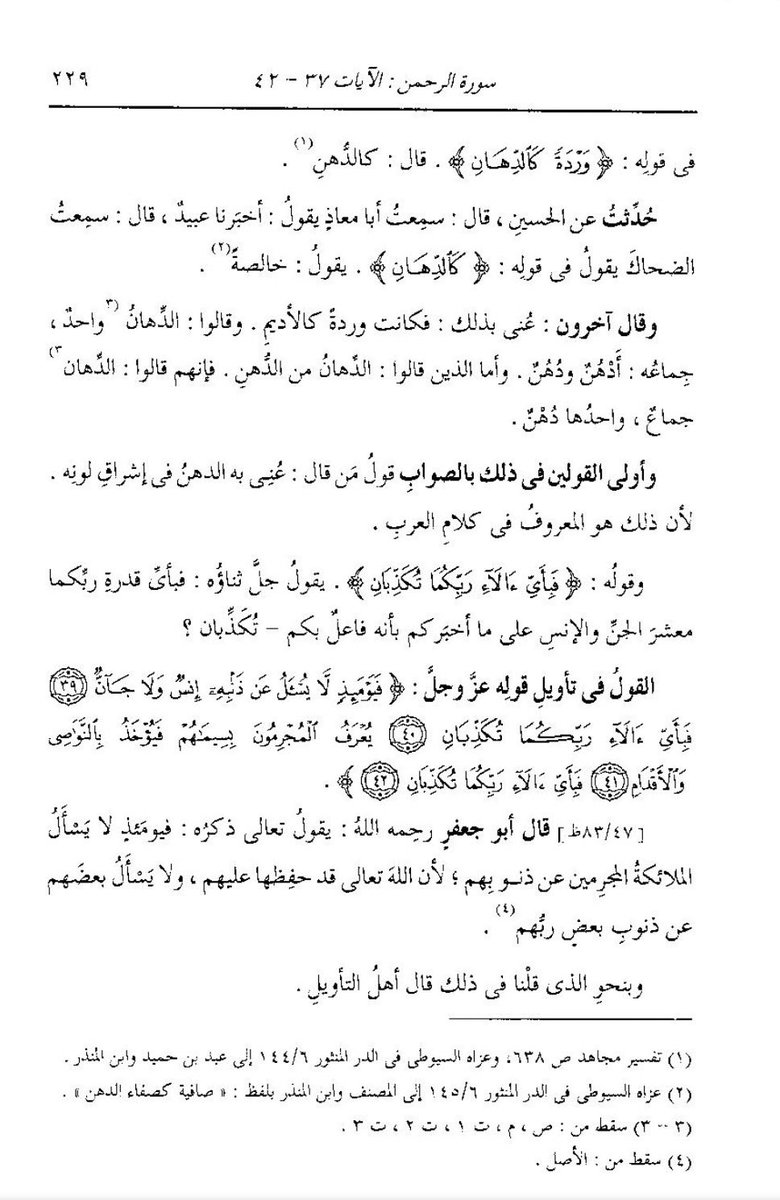 سورة الرحمن : الآيات ٣٧ - ٤٢ ٢٢٩
فى قولِه : ﴿ وَرْدَةً كَٱلدِّهَانِ ﴾ . قال : كالدُّهنِ(١) .
حُدِّثتُ عن الحسينِ ، قال : سمِعتُ أبا معاذٍ يقولُ : أخبَرنا عبيدٌ ، قال : سمِعتُ
الضحاكَ يقولُ فى قولِه : ﴿ كَٱلدِّهَانِ ﴾ . يقولُ : خالصةً(٢) .
وقال آخرون : عُنى بذلك : فكانت وردةً كالأديمِ . وقالوا : الدِّهانُ (٣واحدٌ ،
جِماعُه : أَدْهُنٌ ودُهُنٌ . وأما الذين قالوا : الدِّهانُ من الدُّهنِ . فإنهم قالوا : الدِّهان٣)
جماعٌ ، واحدُها دُهْنٌ .
وأولى القولين فى ذلك بالصوابِ قولُ مَن قال : عُنِى به الدهنُ فى إشراقِ لونِه .
لأن ذلك هو المعروفُ فى كلامِ العربِ .
وقولُه : ﴿ فَبِأَىِّ ءَالَآءِ رَبِّكُمَا تُكَذِّبَانِ ﴾ . يقولُ جلَّ ثناؤُه : فبأىِّ قدرةِ ربِّكما
معشرَ الجنِّ والإنسِ على ما أخبَركم بأنه فاعلٌ بكم – تُكَذِّبان ؟
القولُ فى تأويلِ قولِه عزَّ وجلَّ : ﴿ فَيَوْمَئِذٍ لَّا يُسْـَٔلُ عَن ذَنۢبِهِۦٓ إِنسٌ وَلَا جَآنٌّ ٣٩
فَبِأَىِّ ءَالَآءِ رَبِّكُمَا تُكَذِّبَانِ ٤٠ يُعْرَفُ ٱلْمُجْرِمُونَ بِسِيمَٰهُمْ فَيُؤْخَذُ بِٱلنَّوَٰصِى
وَٱلْأَقْدَامِ ٤١ فَبِأَىِّ ءَالَآءِ رَبِّكُمَا تُكَذِّبَانِ ٤٢ ﴾ .
[٨٣/٤٧ظ] قال أبو جعفرٍ رحِمه اللهُ : يقولُ تعالى ذكرُه : فيومَئذٍ لا يَسْأَلُ
الملائكةُ المجرِمين عن ذنوبِهم ؛ لأن اللهَ تعالى قد حفِظها عليهم ، ولا يَسْأَلُ بعضَهم
عن ذنوبِ بعضٍ ربُّهم(٤) .
وبنحوِ الذى قلْنا فى ذلك قال أهلُ التأويلِ .
(١) تفسير مجاهد ص ٦٣٨، وعزاه السيوطى فى الدر المنثور ١٤٤/٦ إلى عبد بن حميد وابن المنذر .
(٢) عزاه السيوطى فى الدر المنثور ١٤٥/٦ إلى المصنف وابن المنذر بلفظ : « صافية كصفاء الدهن » .
(٣ - ٣) سقط من : ص ، م ، ت ١ ، ت ٢ ، ت ٣ .
(٤) سقط من : الأصل .